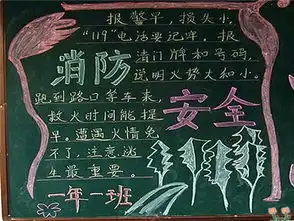 报警早，损失小，
"119"电话要记牢，报
消防
清门牌和号码，
说明火势大和小。
跑到路口等车来，
安全
救火时间能提
早，遭遇火情免
不了，注意逃
生最重要。
一年一班